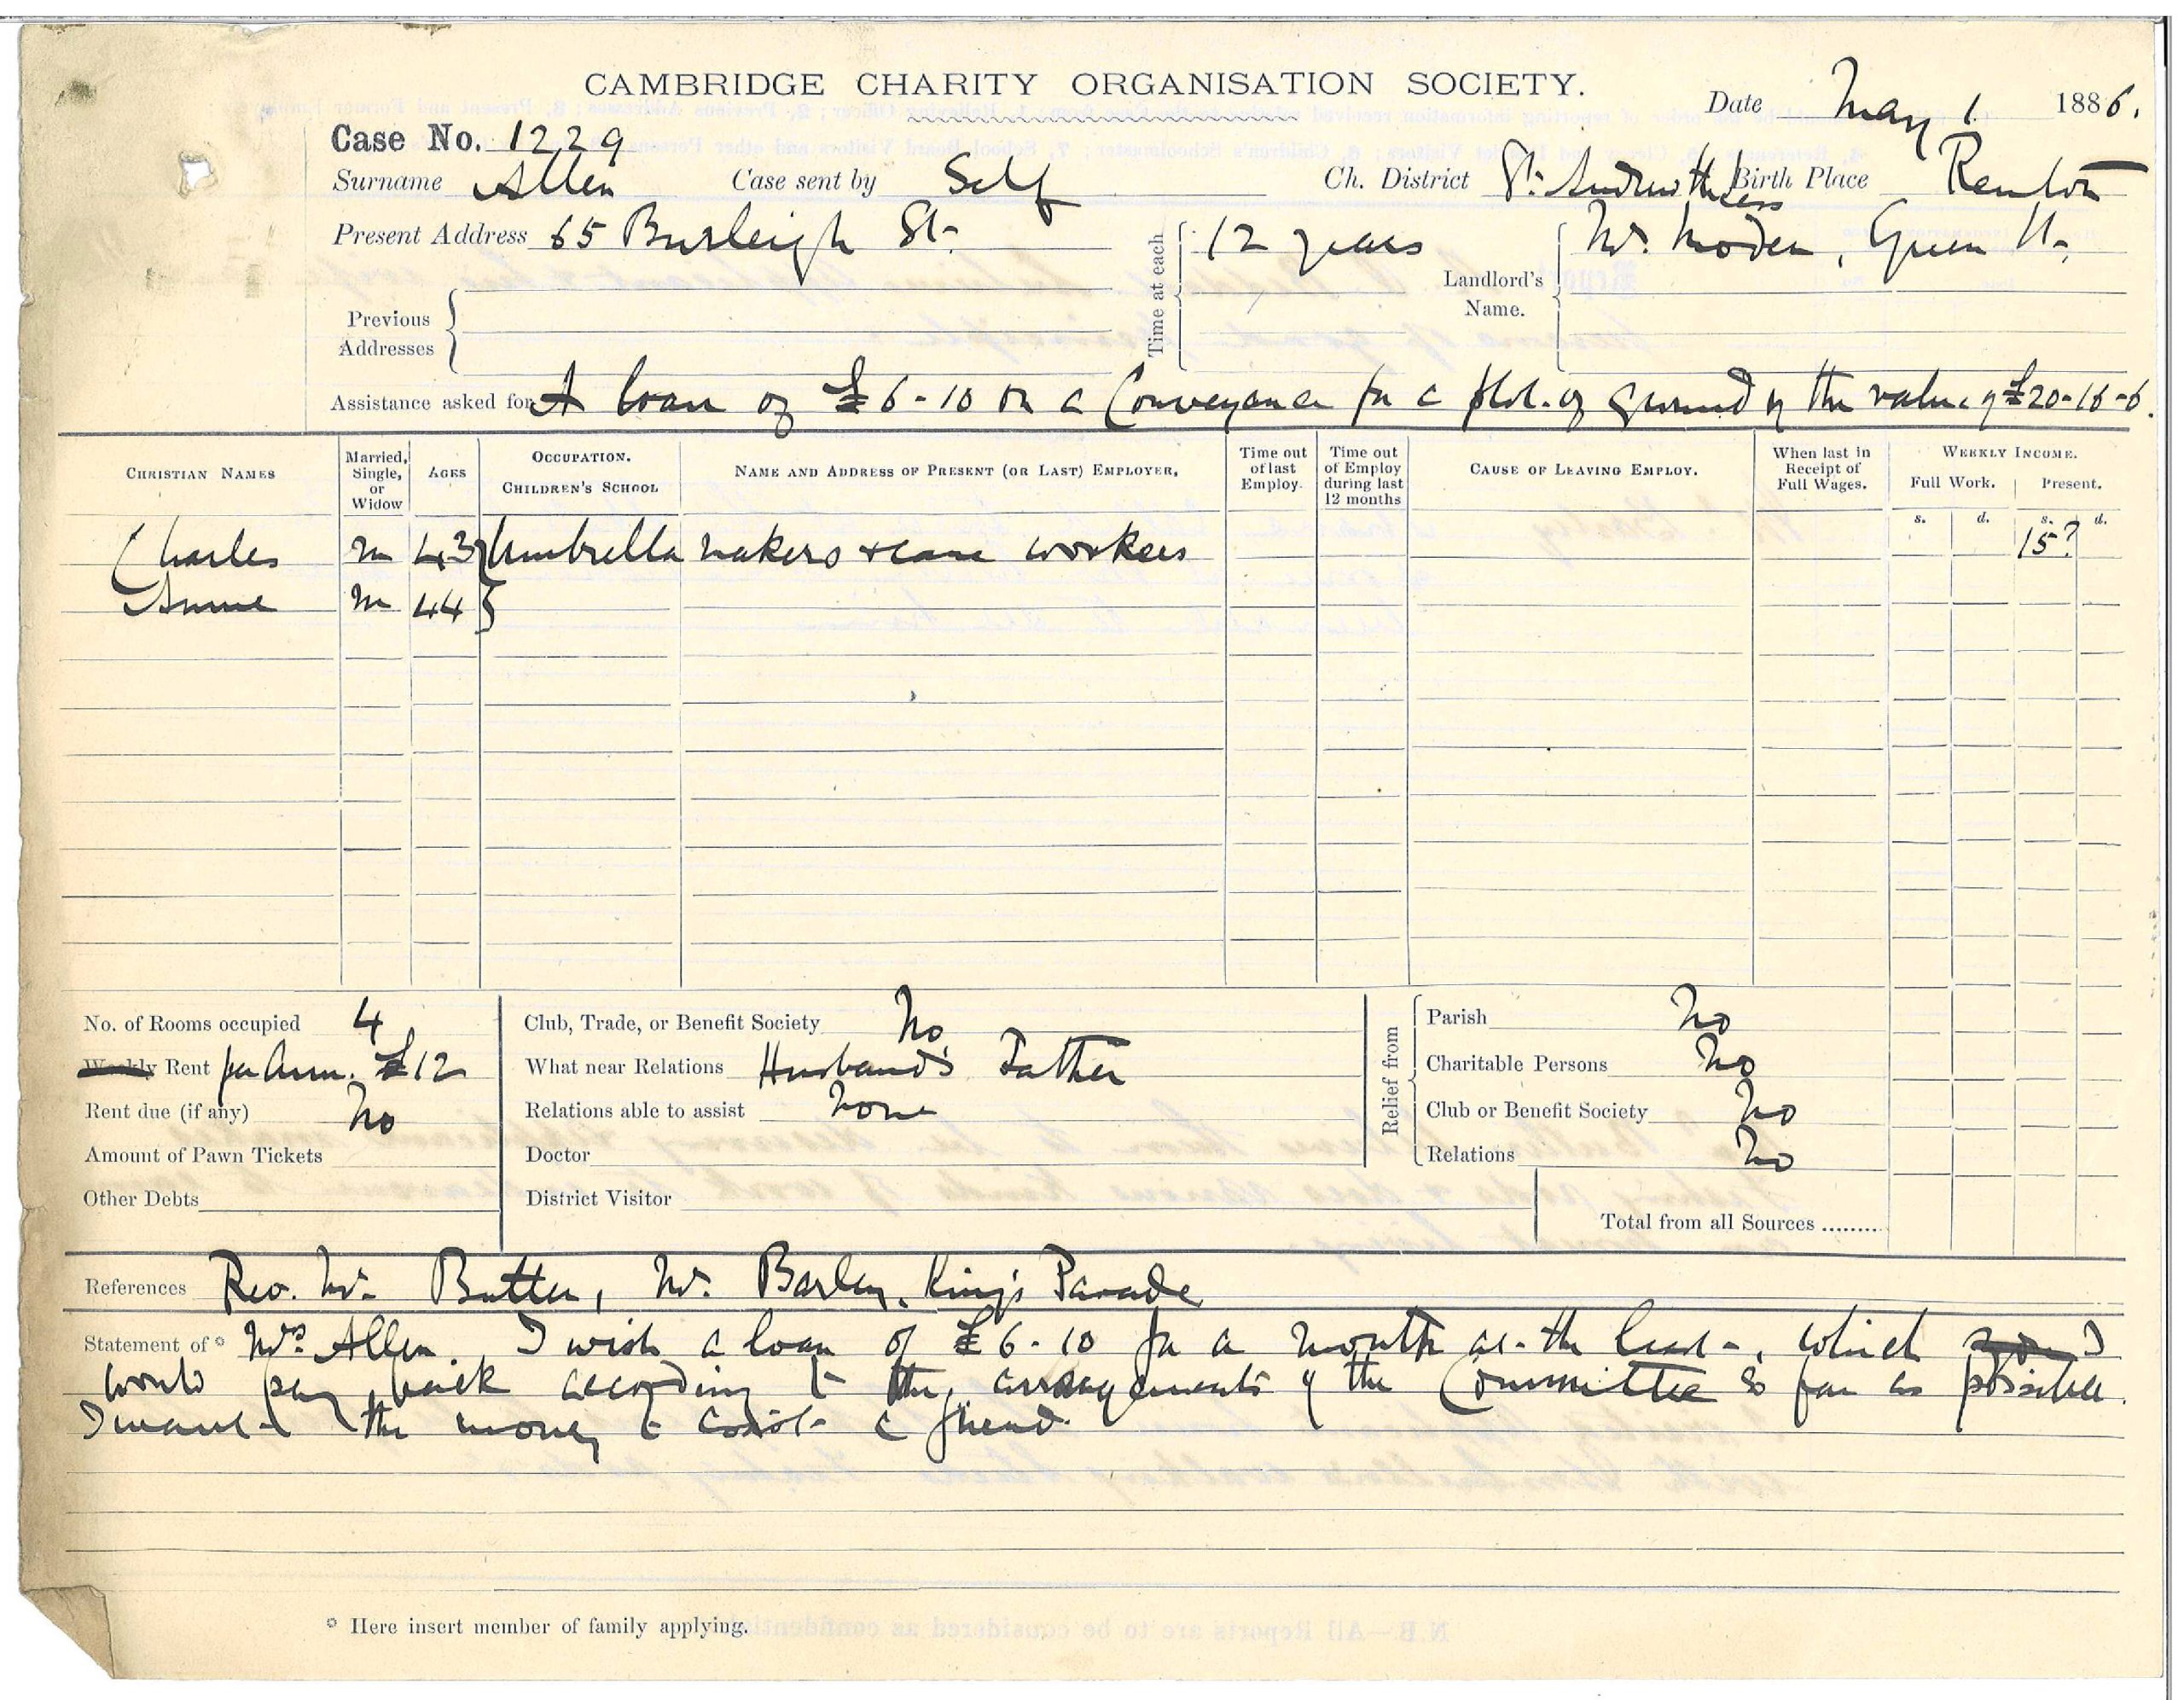 CAMBRIDGE CHARITY ORGANISATION SOCIETY.
Date May 1 1886.
Case No. 1229
Surname Allen Case sent by Self Ch. District St. Andrew the Less Birth Place
Present Address 65 Burleigh St. Time at each 12 years Landlord's Name. Mr. Moden, Green St.
Previous Addresses
Assistance asked for A loan of £6-10 on a Conveyance for a plot of ground of the value of £20-16-6.
CHRISTIAN NAMES Married, Single, or Widow AGES OCCUPATION. CHILDREN'S SCHOOL NAME AND ADDRESS OF PRESENT (OR LAST) EMPLOYER. Time out of last Employ. Time out of Employ during last 12 months CAUSE OF LEAVING EMPLOY. When last in Receipt of Full Wages. WEEKLY INCOME.
Full Work. Present.
s. d. s. d.
Charles M 43 Umbrella makers & cane workers 15?
Annie M 44
No. of Rooms occupied 4 Club, Trade, or Benefit Society No Relief from Parish No
Weekly Rent per Ann. £12 What near Relations Husband's Father Charitable Persons No
Rent due (if any) No Relations able to assist None Club or Benefit Society No
Amount of Pawn Tickets Doctor Relations No
Other Debts District Visitor
Total from all Sources .........
References Rev. Mr. Butler, Mr. Barley, King's Parade
Statement of * Mrs. Allen. I wish a loan of £6-10 for a month at the least, which I
would pay back according to the arrangements of the Committee so far as possible.
I want the money to assist a friend.
* Here insert member of family applying.